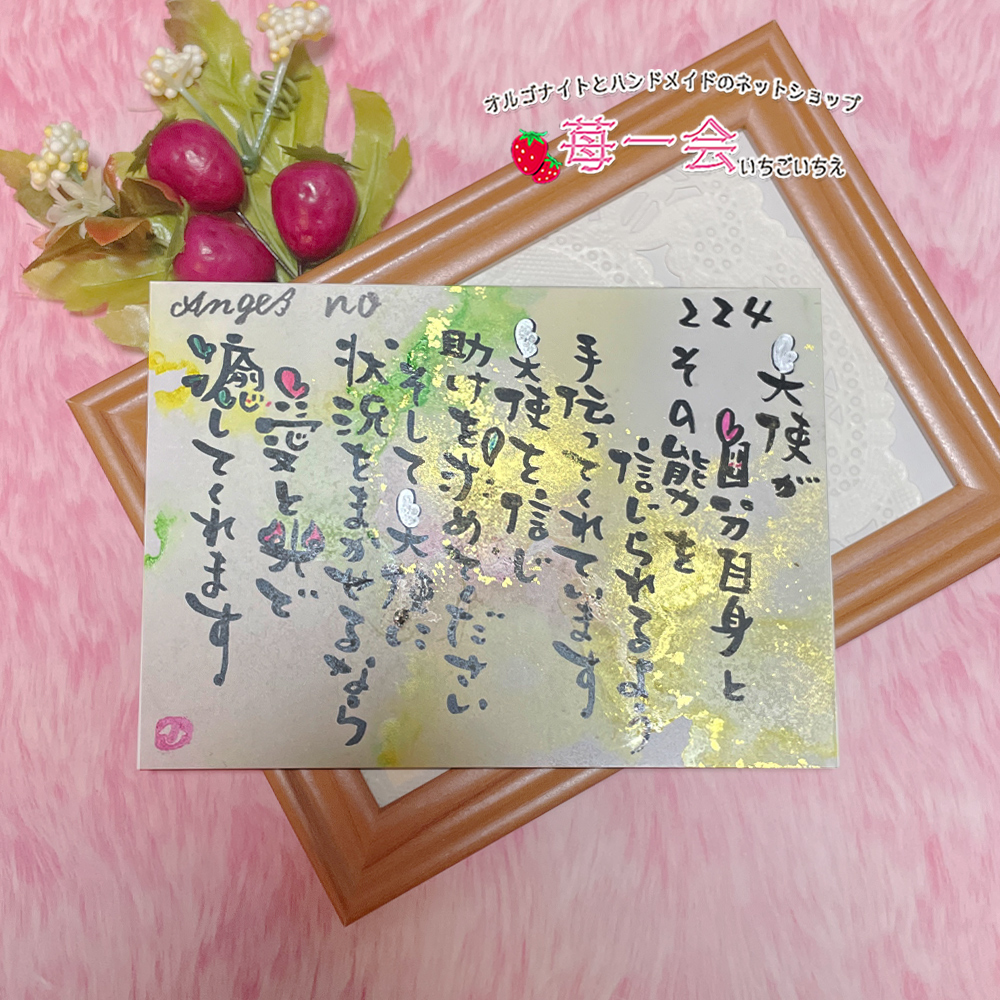 オルゴナイトとハンドメイドのネットショップ
苺一会
いちごいちえ
Angel no
224
天使が
自分自身と
その能力を
信じられるよう
手伝ってくれています
天使を信じ
助けを求めてください
そして天使に
状況をまかせるなら
愛と光で
癒してくれます